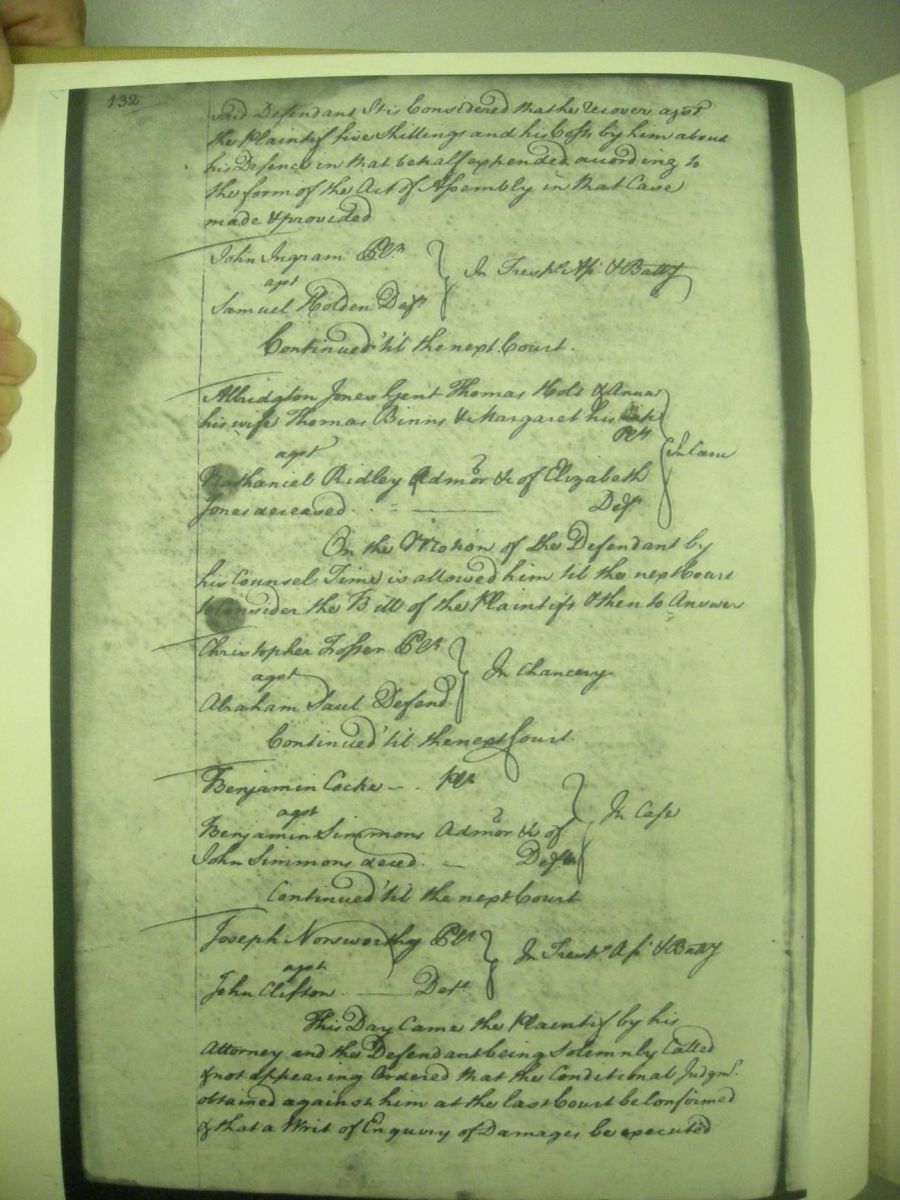 132
said Defendant It is Considered that he recover agst
the Plaintif five Shillings and his Costs by him about
his Defence in that behalf expended according to
the form of the Act of Assembly in that Case
made & provided
John Ingram Plt
agst
Samuel Holden Deft
In Tresps Ass & Batty
Continued 'til the next Court.
Albridgton Jones Gent Thomas Holt & Anna
his wife Thomas Binns & Margaret his
Plts
agst
Nathaniel Ridley Admor &c of Elizabeth
Jones deceased. Deft
In Canc
On the Motion of the Defendant by
his Counsel Time is allowed him til the next Court
to Consider the Bill of the Plaintifs & then to Answer
Christopher Foster Plt
agst
Abraham Saul Defend
In Chancery
Continued 'til the next Court
Benjamin Cocke Plt
agst
Benjamin Simmons Admor &c of
John Simmons deced. Deft
In Case
Continued 'til the next Court
Joseph Norsworthy Plt
agst
John Clifton Deft
In Tresps Ass & Batty
This Day Came the Plaintif by his
Attorney and the Defendant being Solemnly Called
& not appearing Ordered that the Conditional Judgmt.
obtained against him at the last Court be Confirmed
& that a Writ of Enquiry of Damages be executed